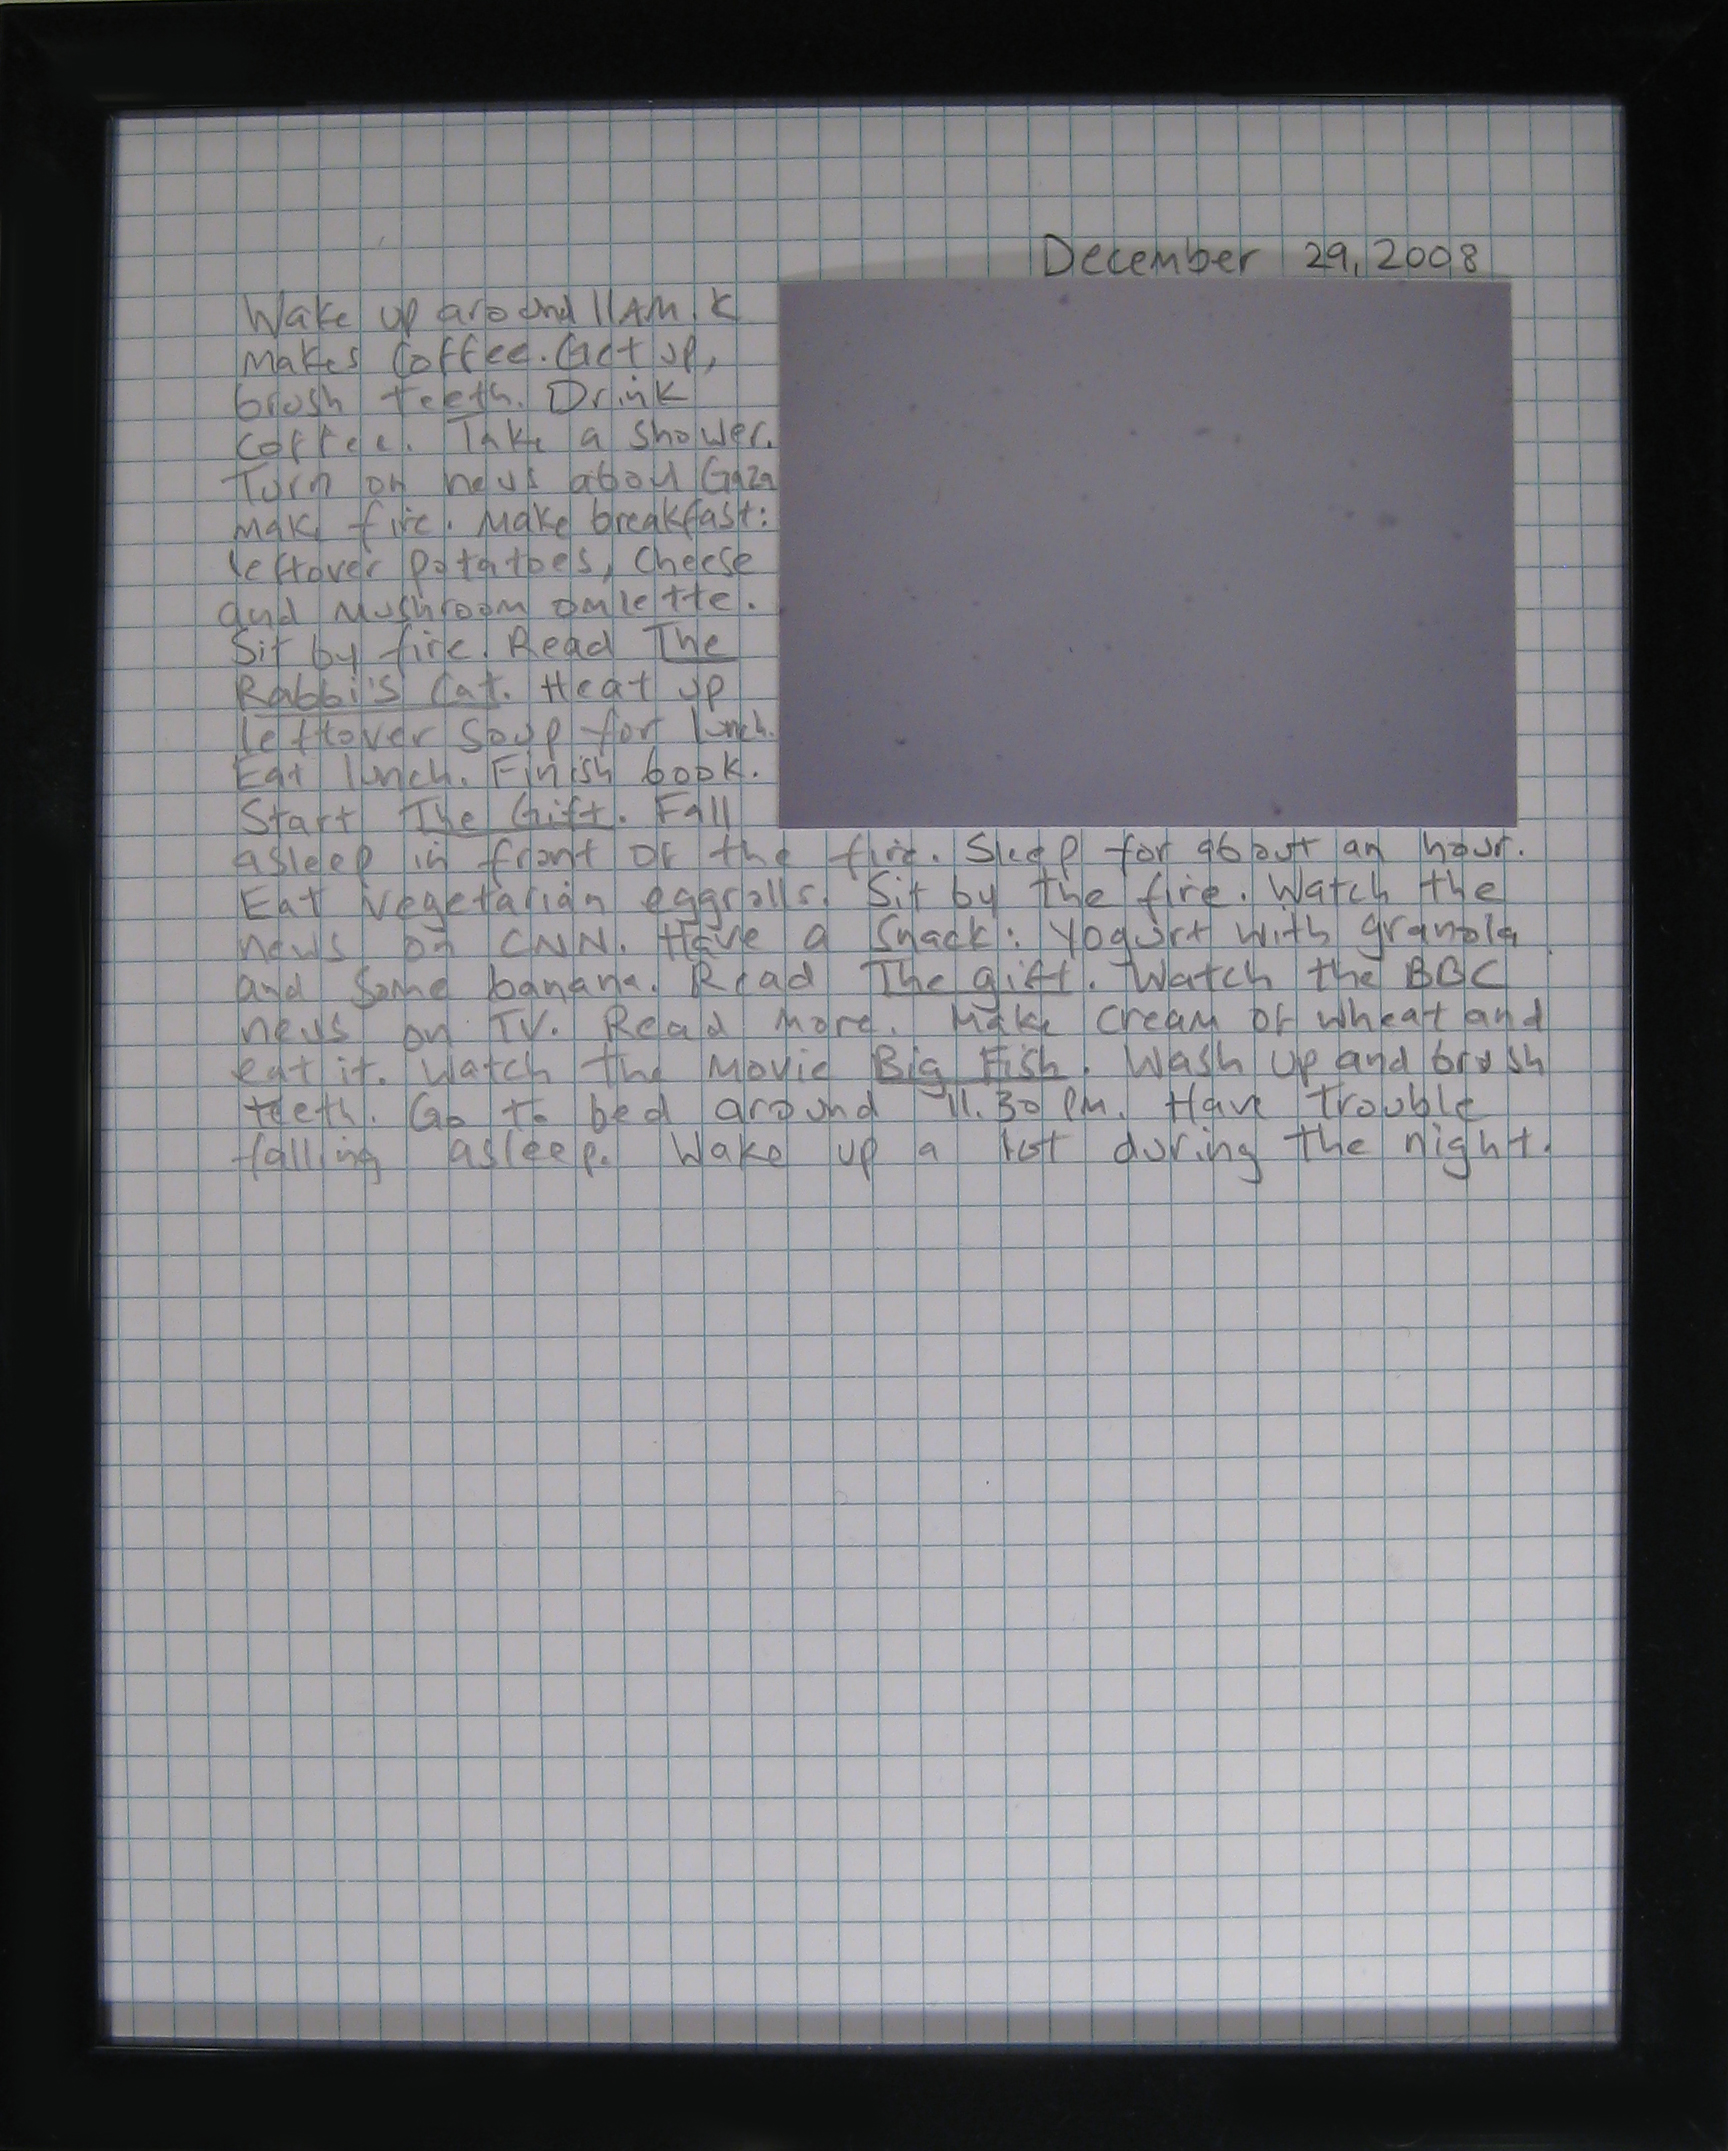 December 29, 2008
Wake up around 11AM. K
makes coffee. Get up,
brush teeth. Drink
coffee. Take a shower.
Turn on news about Gaza
make fire. Make breakfast:
leftover potatoes, cheese
and mushroom omlette.
Sit by fire. Read The
Rabbi's Cat. Heat up
leftover soup for lunch.
Eat lunch. Finish book.
Start The Gift. Fall
asleep in front of the fire. Sleep for about an hour.
Eat vegetarian eggrolls. Sit by the fire. Watch the
news on CNN. Have a snack: yogurt with granola
and some banana. Read The gift. Watch the BBC
news on TV. Read more. Make cream of wheat and
eat it. Watch the movie Big Fish. Wash up and brush
teeth. Go to bed around 11.30 PM. Have trouble
falling asleep. Wake up a lot during the night.